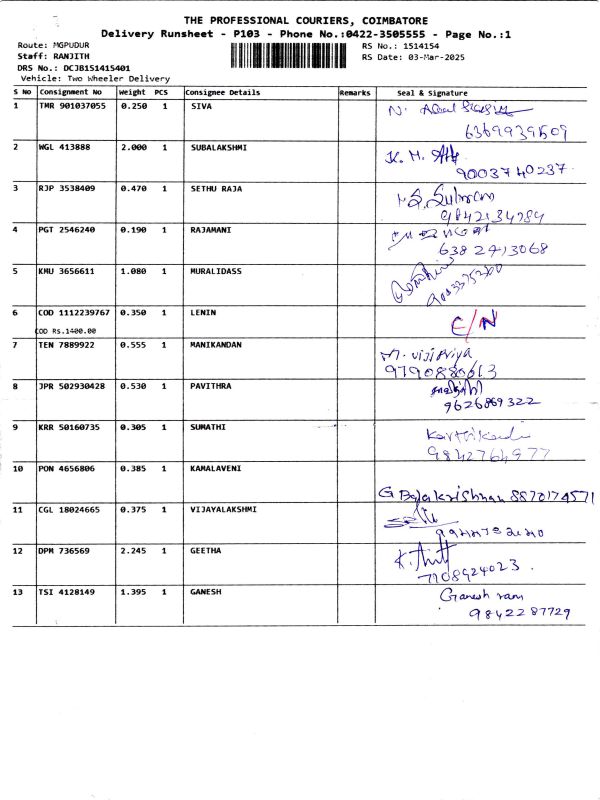 THE PROFESSIONAL COURIERS, COIMBATORE
Delivery Runsheet - P103 - Phone No.:0422-3505555 - Page No.:1
Route: MGPUDUR RS No.: 1514154
Staff: RANJITH RS Date: 03-Mar-2025
DRS No.: DCJB151415401
Vehicle: Two Wheeler Delivery
S No Consignment No Weight PCS Consignee Details Remarks Seal & Signature
1 TMR 901037055 0.250 1 SIVA N.
6369939509
2 WGL 413888 2.000 1 SUBALAKSHMI K. M.
9003740237
3 RJP 3538409 0.470 1 SETHU RAJA
9842134784
4 PGT 2546240 0.190 1 RAJAMANI
6382413068
5 KMU 3656611 1.080 1 MURALIDASS
6 COD 1112239767 0.350 1 LENIN E/N
COD Rs.1400.00
7 TEN 7889922 0.555 1 MANIKANDAN M. vijipriya
9790886613
8 JPR 502930428 0.530 1 PAVITHRA
9626869322
9 KRR 50160735 0.305 1 SUMATHI
9842764977
10 PON 4656806 0.385 1 KAMALAVENI
G Balakrishnan 8870174571
11 CGL 18024665 0.375 1 VIJAYALAKSHMI
12 DPM 736569 2.245 1 GEETHA
7708924023
13 TSI 4128149 1.395 1 GANESH Ganesh ram
9842287729